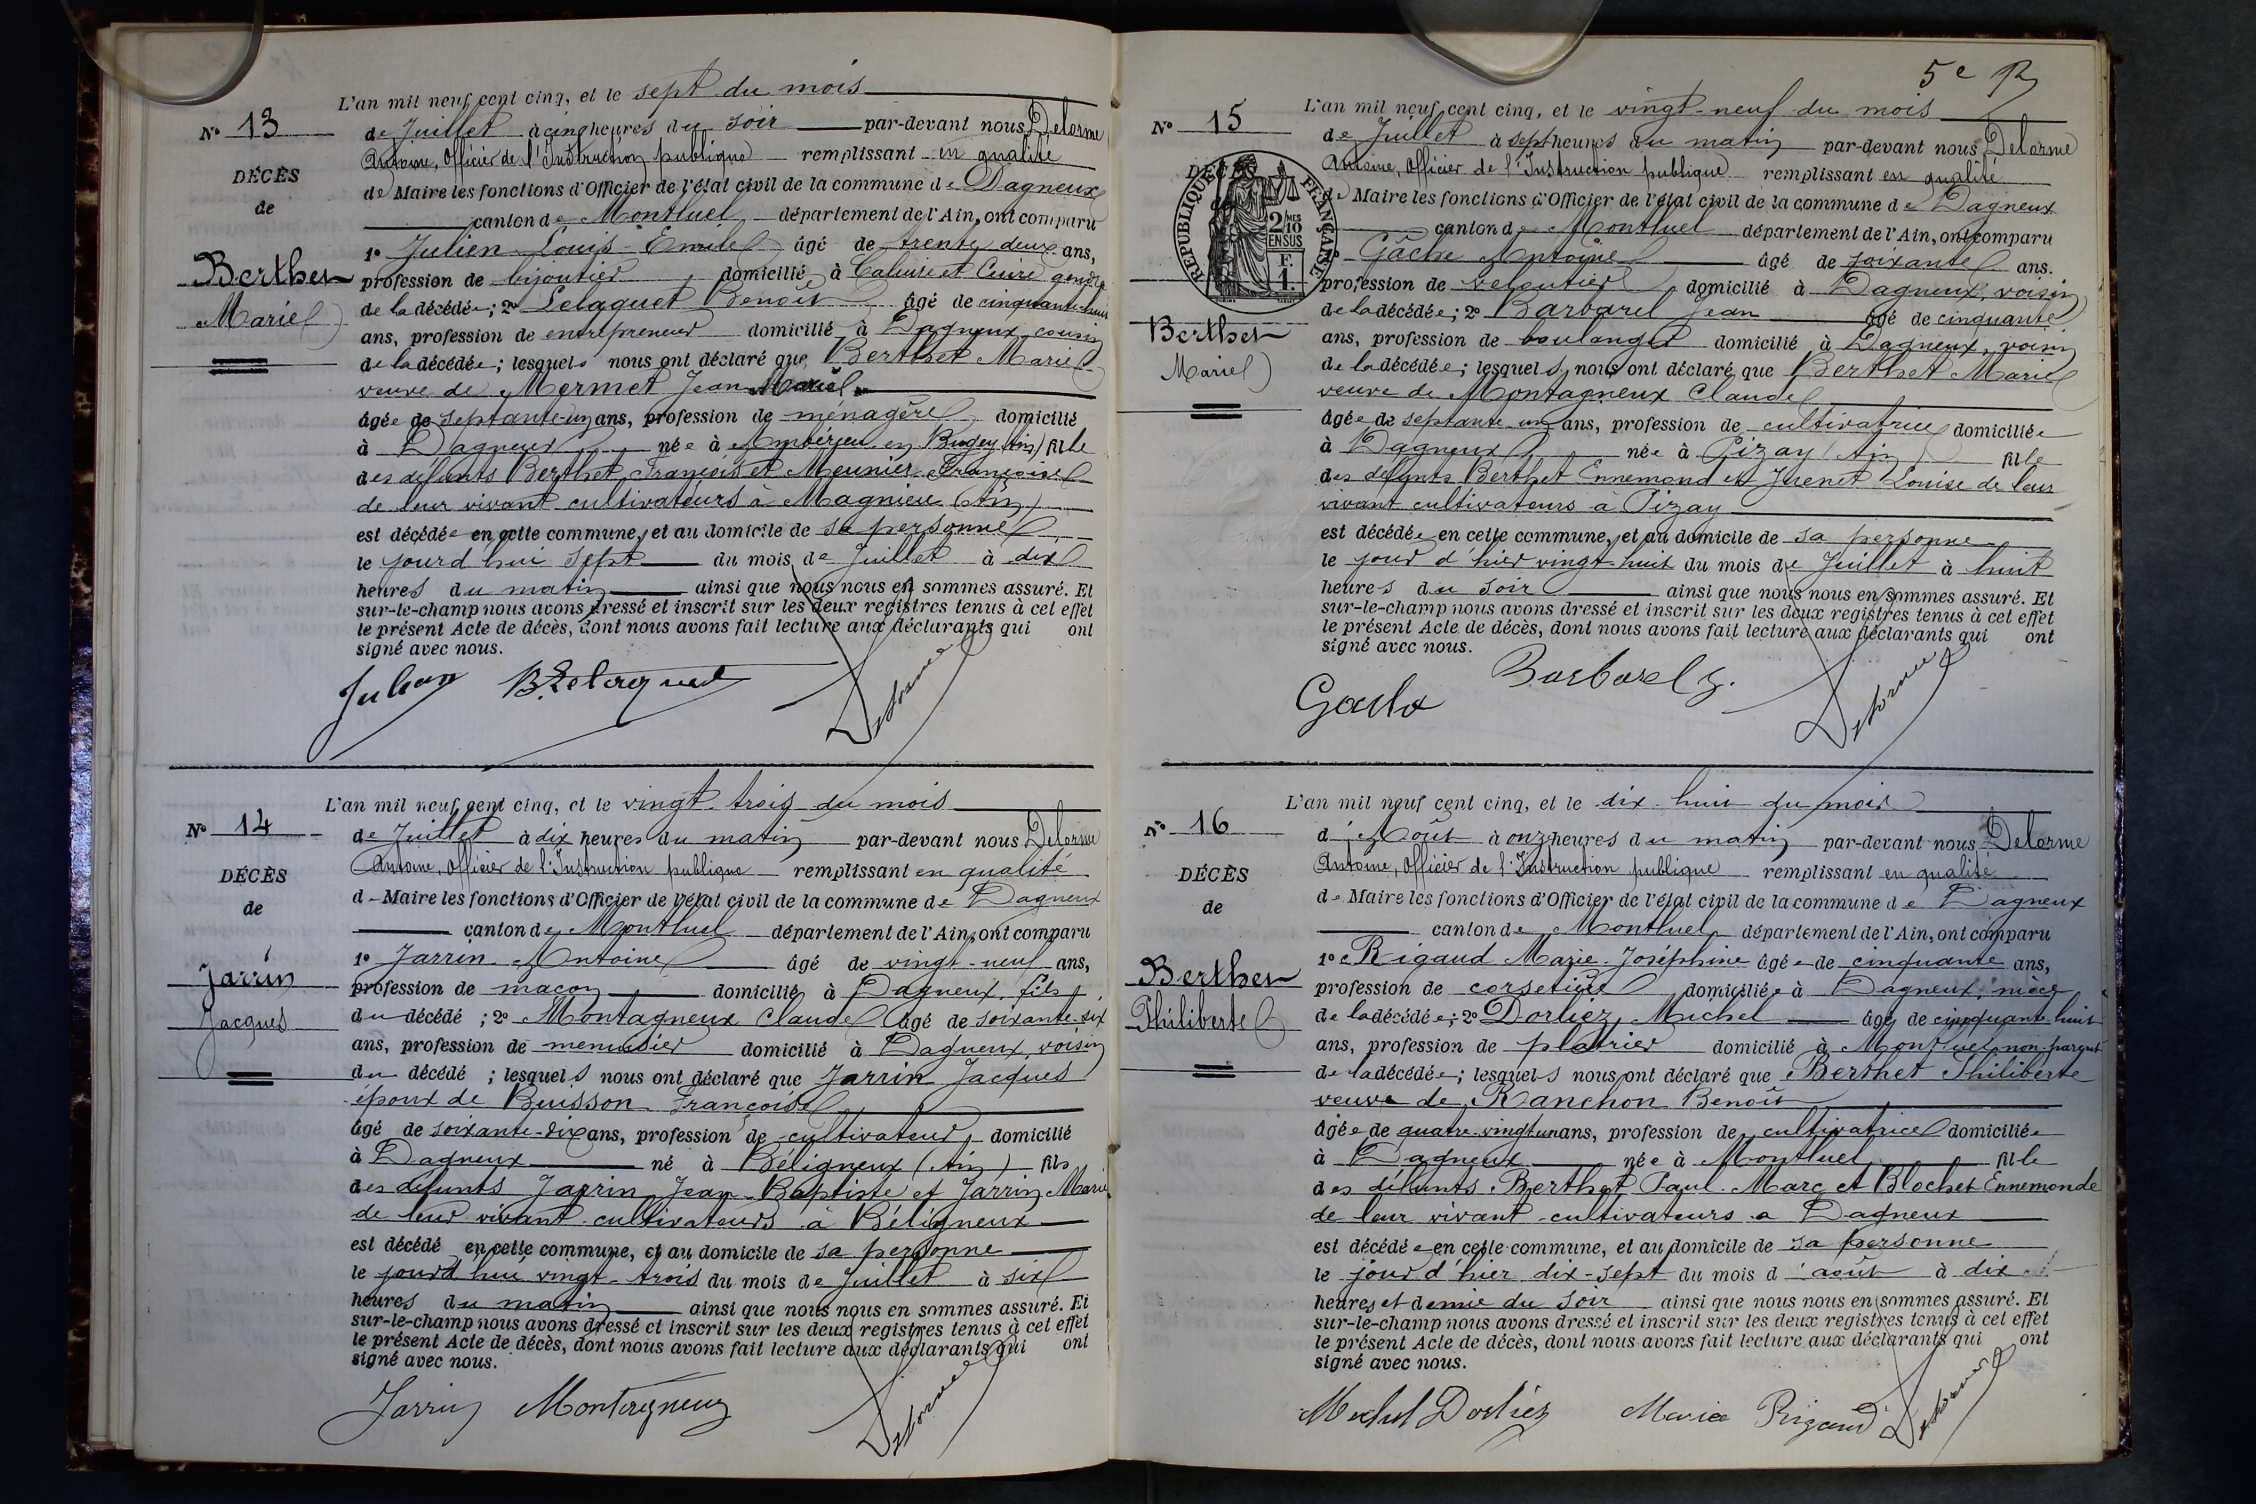 L'an mil neuf cent cinq, et le sept du mois
N° 13
de Juillet à cinq heures du soir par-devant nous Delorme
Antoine, Officier de l'Instruction publique remplissant en qualité
DÉCÈS
de Maire les fonctions d'Officier de l'état civil de la commune de Dagneux
de
canton de Montluel département de l'Ain, ont comparu
1° Julien Louis Emile âgé de trente deux ans,
Berthet
profession de bijoutier domicilié à Caluire et Cuire gendre
Marie
de la décédée; 2° Lelaquet Benoit âgé de cinquante-huit
ans, profession de entrepreneur domicilié à Dagneux, cousin
de la décédée; lesquels nous ont déclaré que Berthet Marie
veuve de Mermet Jean Marie
âgée de septante-un ans, profession de ménagère domicilié
à Dagneux née à Ambérieu en Bugey (Ain) fille
des défunts Berthet François et Meunier Françoise
de leur vivant cultivateurs à Magnieu (Ain)
est décédée en cette commune, et au domicile de sa personne
le jourd'hui sept du mois de Juillet à dix
heures du matin ainsi que nous nous en sommes assuré. Et
sur-le-champ nous avons dressé et inscrit sur les deux registres tenus à cet effet
le présent Acte de décès, dont nous avons fait lecture aux déclarants qui ont
signé avec nous.
Julien B. Lelaquet Delorme
L'an mil neuf cent cinq, et le vingt-trois du mois
N° 14
de Juillet à dix heures du matin par-devant nous Delorme
Antoine, Officier de l'Instruction publique remplissant en qualité
DÉCÈS
de Maire les fonctions d'Officier de l'état civil de la commune de Dagneux
de
canton de Montluel département de l'Ain, ont comparu
1° Jarrin Antoine âgé de vingt-neuf ans,
Jarrin
profession de maçon domicilié à Dagneux, fils
Jacques
du décédé; 2° Montagneux Claude âgé de soixante-six
ans, profession de menuisier domicilié à Dagneux, voisin
du décédé; lesquels nous ont déclaré que Jarrin Jacques
époux de Buisson Françoise
âgé de soixante-dix ans, profession de cultivateur domicilié
à Dagneux né à Béligneux (Ain) fils
des défunts Jarrin Jean-Baptiste et Jarrin Marie
de leur vivant cultivateurs à Béligneux
est décédé en cette commune, et au domicile de sa personne
le jourd'hui vingt-trois du mois de Juillet à six
heures du matin ainsi que nous nous en sommes assuré. Et
sur-le-champ nous avons dressé et inscrit sur les deux registres tenus à cet effet
le présent Acte de décès, dont nous avons fait lecture aux déclarants qui ont
signé avec nous.
Jarrin Montagneux Delorme
5e
L'an mil neuf cent cinq, et le vingt-neuf du mois
N° 15
de Juillet à sept heures du matin par-devant nous Delorme
Antoine, Officier de l'Instruction publique remplissant en qualité
DÉCÈS
RÉPUBLIQUE FRANÇAISE
2/10 MES
EN SUS
F.
1.
de Maire les fonctions d'Officier de l'état civil de la commune de Dagneux
canton de Montluel département de l'Ain, ont comparu
Gâche Antoine âgé de soixante ans.
profession de veloutier domicilié à Dagneux, voisin
de la décédée; 2° Barbarel Jean âgé de cinquante
Berthet
ans, profession de boulanger domicilié à Dagneux, voisin
Marie
de la décédée; lesquels nous ont déclaré que Berthet Marie
veuve de Montagneux Claude
âgée de septante un ans, profession de cultivatrice domiciliée
à Dagneux née à Pizay (Ain) fille
des défunts Berthet Ennemond et Juenet Louise de leur
vivant cultivateurs à Pizay
est décédée en cette commune, et au domicile de sa personne
le jour d'hier vingt-huit du mois de Juillet à huit
heures du soir ainsi que nous nous en sommes assuré. Et
sur-le-champ nous avons dressé et inscrit sur les deux registres tenus à cet effet
le présent Acte de décès, dont nous avons fait lecture aux déclarants qui ont
signé avec nous.
Barbarel J. Delorme
L'an mil neuf cent cinq, et le dix-huit du mois
N° 16
d'Août à onze heures du matin par-devant nous Delorme
Antoine, Officier de l'Instruction publique remplissant en qualité
DÉCÈS
de Maire les fonctions d'Officier de l'état civil de la commune de Dagneux
de
canton de Montluel département de l'Ain, ont comparu
1° Rigaud Marie-Joséphine âgée de cinquante ans,
Berthet
profession de corsetière domiciliée à Dagneux, nièce
Philiberte
de la décédée; 2° Dorliez Michel âgé de cinquante huit
ans, profession de plâtrier domicilié à Montluel non parent
de la décédée; lesquels nous ont déclaré que Berthet Philiberte
veuve de Ranchon Benoît
âgée de quatre-vingt un ans, profession de cultivatrice domiciliée
à Dagneux née à Montluel fille
des défunts Berthet Paul-Marc et Blochet Ennemonde
de leur vivant cultivateurs a Dagneux
est décédée en cette commune, et au domicile de sa personne
le jour d'hier dix-sept du mois d'août à dix
heures et demie du soir ainsi que nous nous en sommes assuré. Et
sur-le-champ nous avons dressé et inscrit sur les deux registres tenus à cet effet
le présent Acte de décès, dont nous avons fait lecture aux déclarants qui ont
signé avec nous.
Michel Dorliez Marie Rigaud Delorme